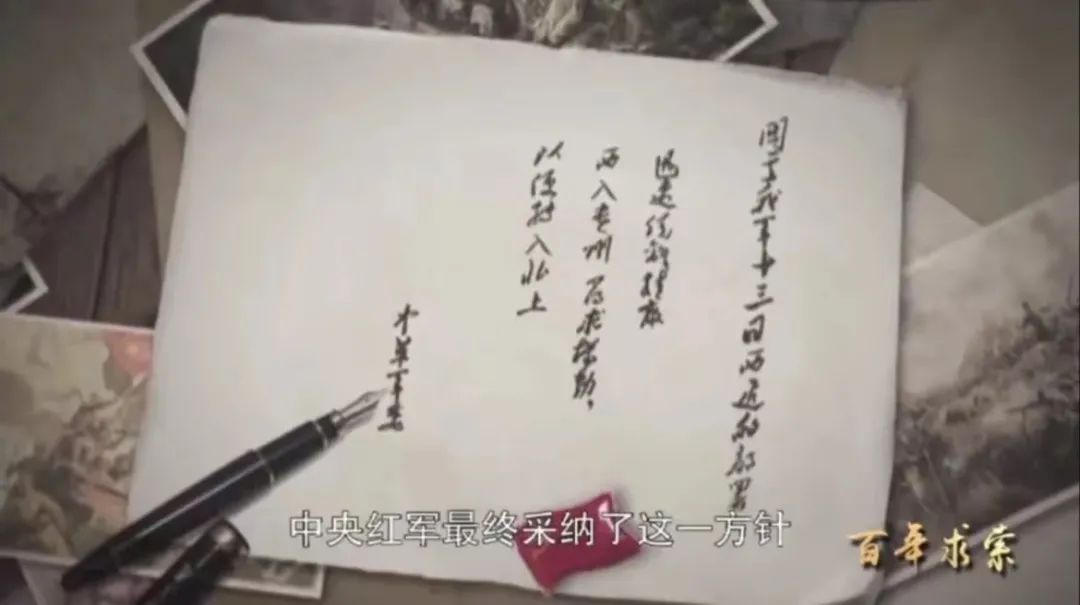 关于我军十三日西进的部署
迅速脱离敌
西入贵州 寻求机动，
以便转入北上
中革军委
中央红军最终采纳了这一方针
百年求索